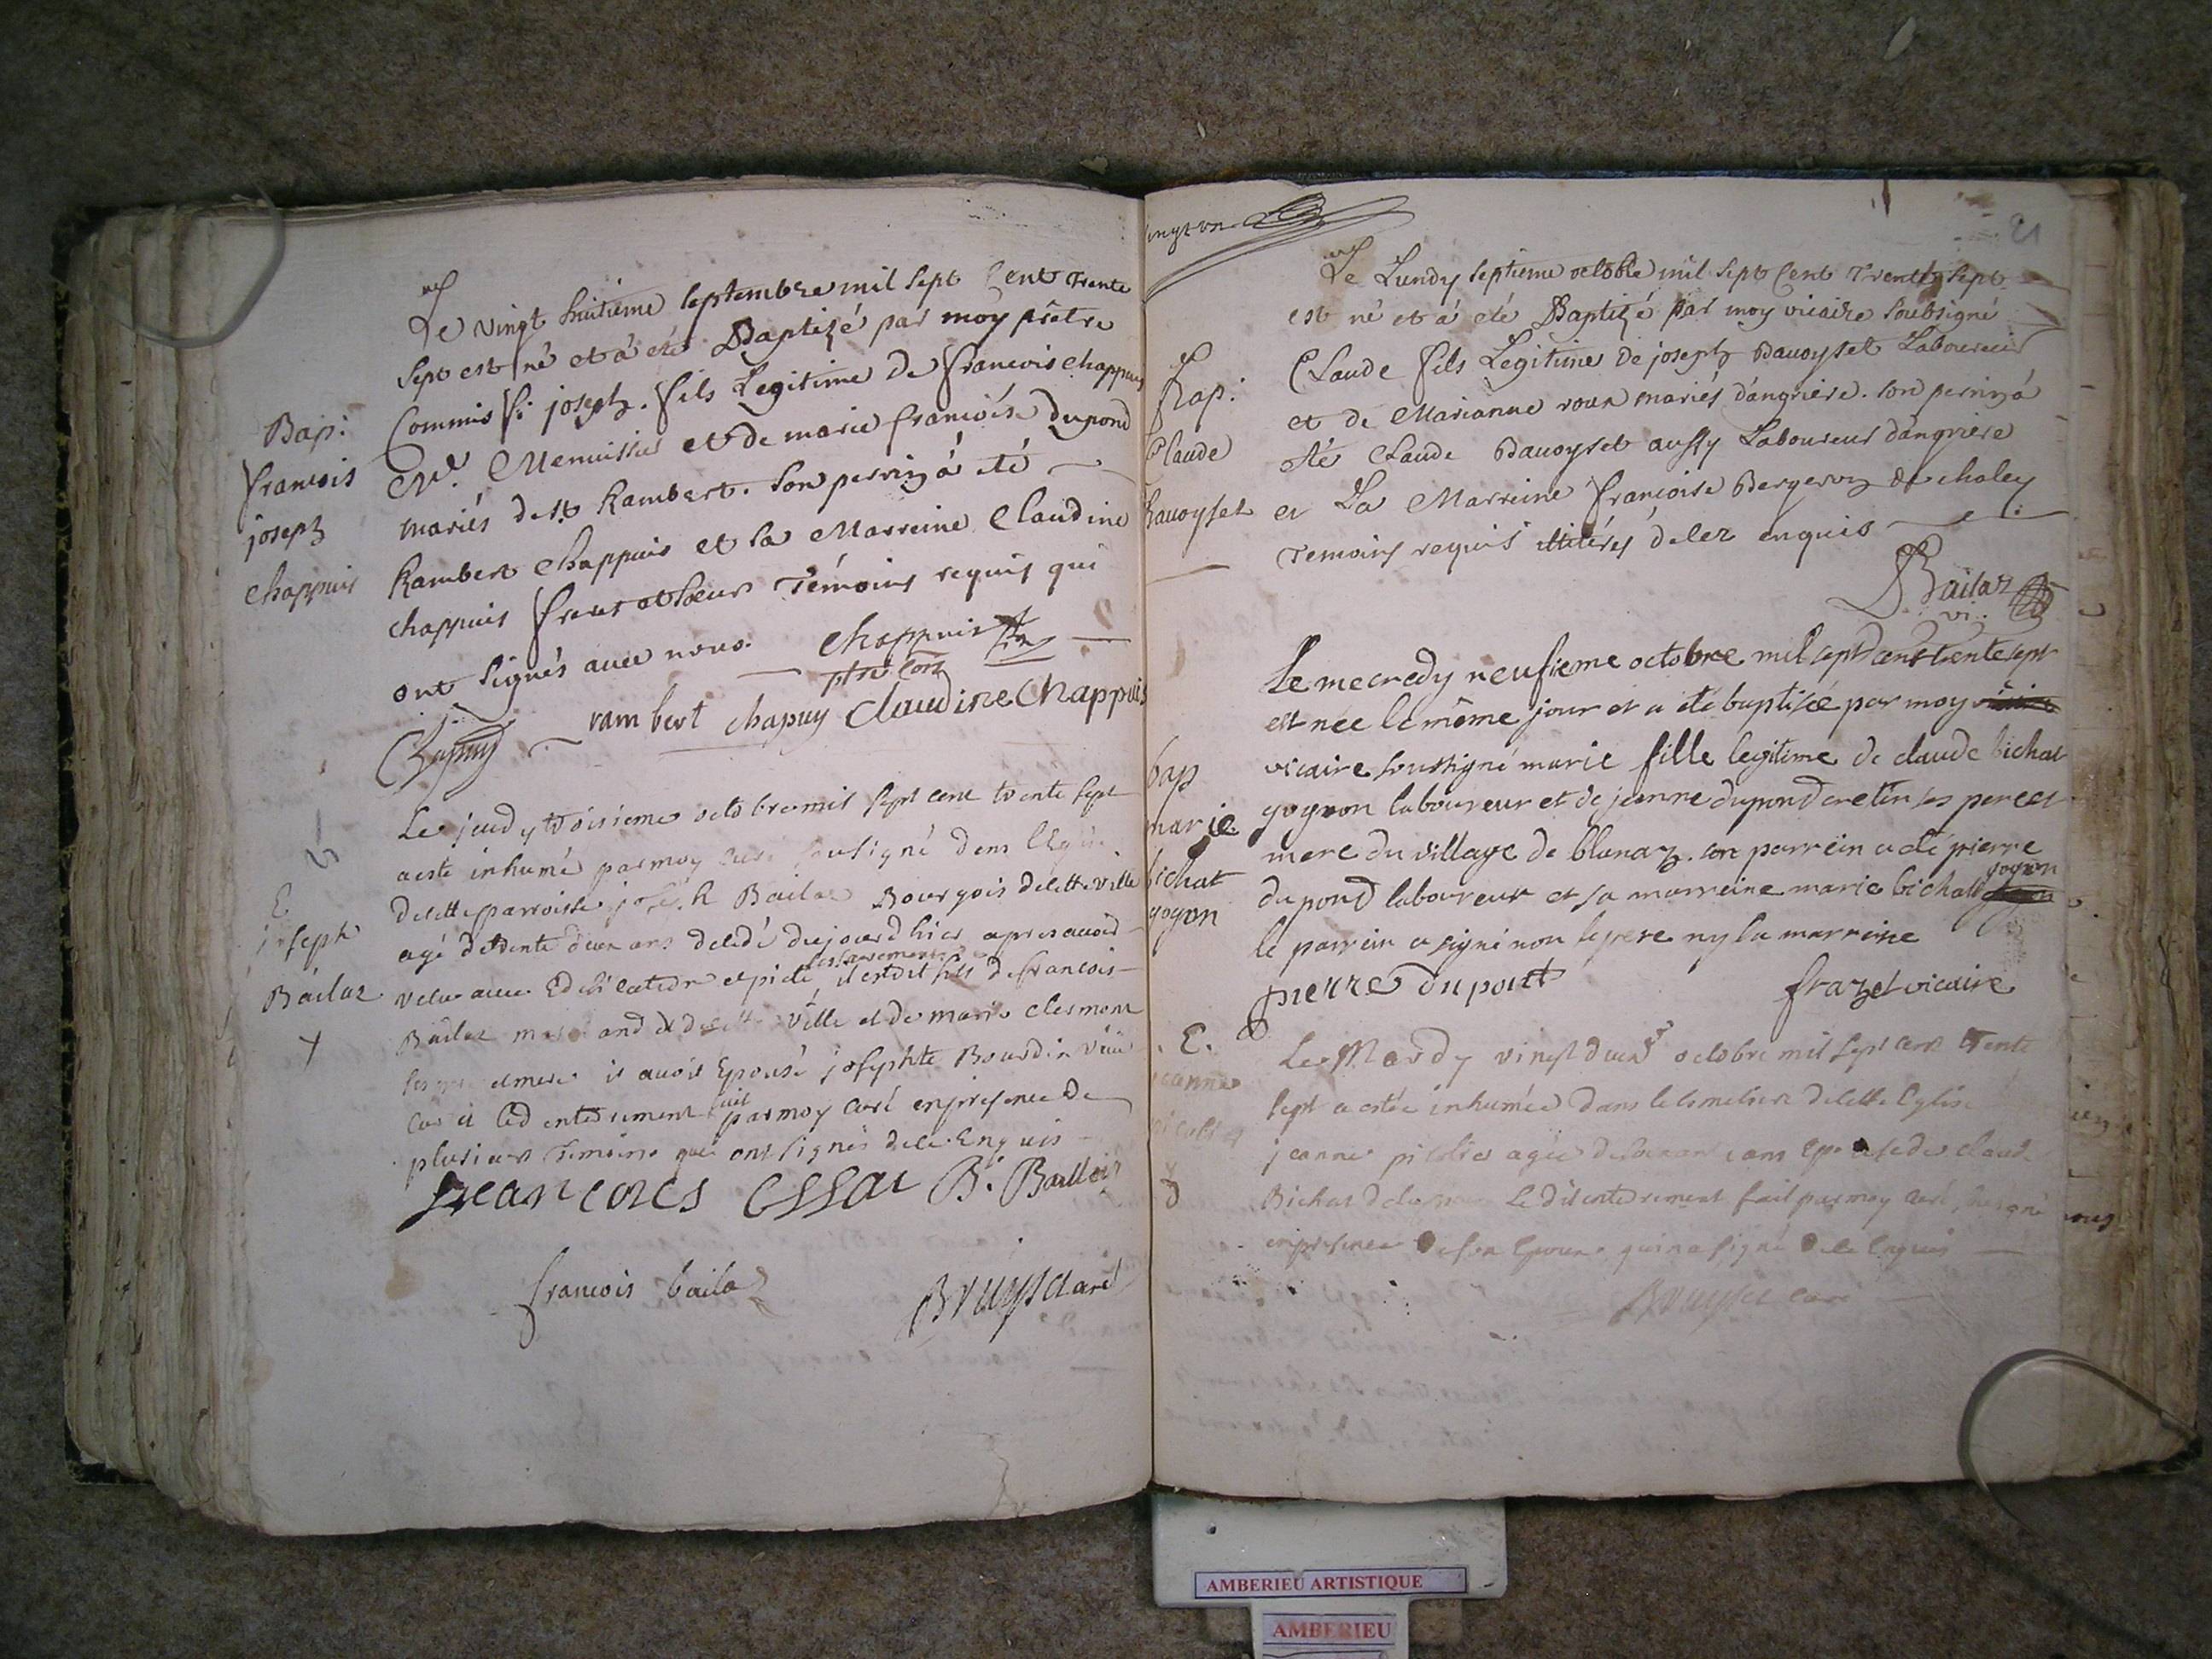 Le vingt huitieme septembre mil sept Cent Trente
sept est né et a eté Baptizé par moy prêtre
Commis joseph. fils Legitime de francois chappuis
Me. Menuisier et de marie francoise Dupond
mariés de st. Rambert. son perrin a eté
Rambert Chappuis et la Marreine Claudine
chappuis freres et soeur Témoins requis qui
ont signés avec nous.
Chappuis
ptre Com
rambert chapuy Claudine Chappuis
Bap:
francois
joseph
chappuis
Le jeudy troisieme octobre mil sept cent trente sept
a esté inhumé par moy curé sousigné dans l'Eglise
de cette parroisse joseph Bailat Bourgois de cette ville
agé de trente deux ans decedé du jourd'hier apres avoir
receu avec Edification et piete les sacrements, il estoit fils de francois
Bailat marchand de cette ville et de marie Clermont
ses pere et mere il avoit Epousé josephte Bourdin
led enterrement fait par moy curé en presence de
plusieurs temoins qui ont signés de ce Enquis
B. Baillot
francois baila
Bruyset curé
E
joseph
Bailat
21
Le Lundy septieme octobre mil sept Cent Trente sept
est né et a eté Baptizé par moy vicaire soubsigné
Claude fils Legitime de joseph Davoyset Laboureur
et de Marianne roux mariés d'angriere. son perrin a
eté Claude Davoyset aussy Laboureur d'angriere
et La Marreine francoise Bergeron de chaley
Temoins requis illiterés de ce enquis
Bailat
vi.
Bap:
Claude
Davoyset
Le mecredy neufieme octobre mil sept cent trente sept
est née le même jour et a été baptisée par moy
vicaire soussigné marie fille legitime de claude bichat
goyon laboureur et de jeanne dupond cretin ses pere et
mere du village de blanaz. son parrein a été pierre
dupond laboureur et sa marreine marie bichat goyon
le parrein a signé non le pere ny la marreine
pierre dupont
frazet vicaire
bap
marie
bichat
goyon
Le Mardy vingt deux octobre mil sept cent trente
sept a estée inhumée dans le Cimetiere de cette Eglise
jeanne agée de ans Epouse de claude
Bichat Le dit enterrement fait par moy curé
en presence de son Epoux qui n'a signé de ce Enquis
Bruyset curé
E.
jeanne
AMBERIEU ARTISTIQUE
AMBERIEU